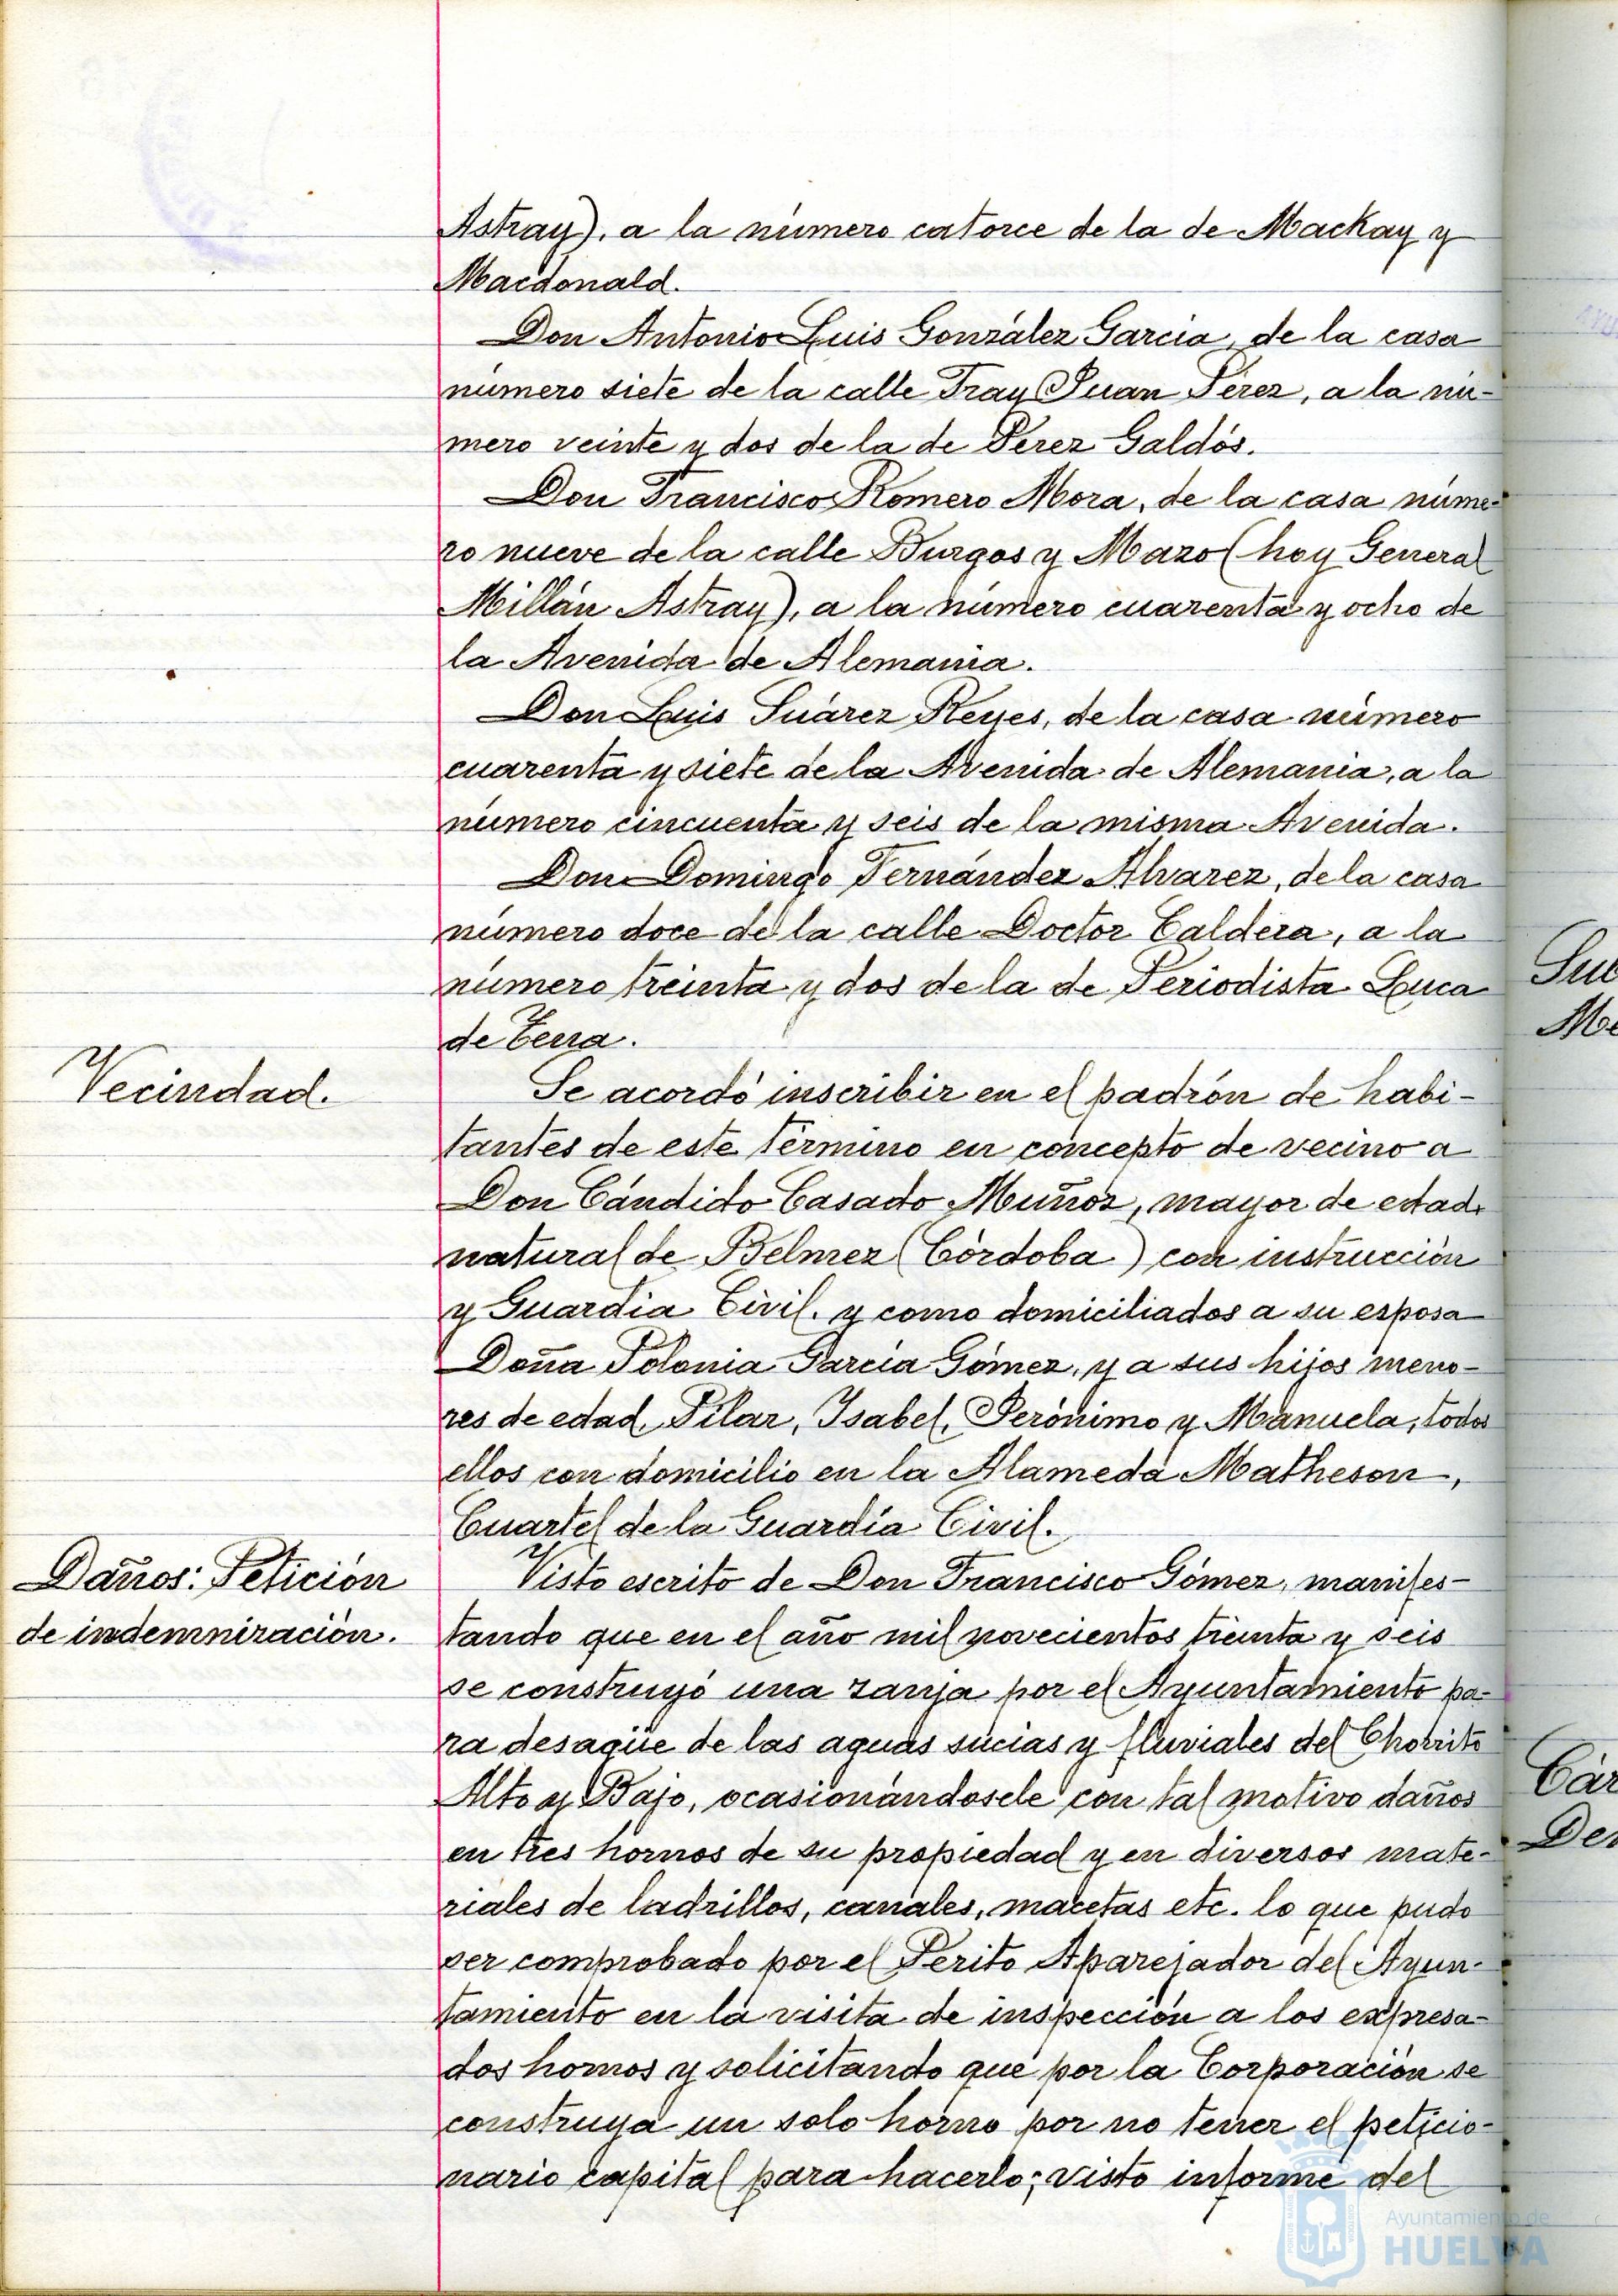 Astray), a la número catorce de la de Mackay y
Macdonald.
Don Antonio Luis González García, de la casa
número siete de la calle Fray Juan Pérez, a la nú-
mero veinte y dos de la de Perez Galdós.
Don Francisco Romero Mora, de la casa núme-
ro nueve de la calle Burgos y Mazo (hoy General
Millán Astray), a la número cuarenta y ocho de
la Avenida de Alemania.
Don Luis Suárez Reyes, de la casa número
cuarenta y siete de la Avenida de Alemania, a la
número cincuenta y seis de la misma Avenida.
Don Domingo Fernández Alvarez, de la casa
número doce de la calle Doctor Caldera, a la
número treinta y dos de la de Periodista Luca
de Tena.
Vecindad.
Se acordó inscribir en el padrón de habi-
tantes de este término en concepto de vecino a
Don Cándido Casado Muñoz, mayor de edad,
natural de Belmez (Córdoba) con instrucción
y Guardia Civil. y como domiciliados a su esposa
Doña Polonia García Gómez, y a sus hijos meno-
res de edad, Pilar, Isabel, Jerónimo y Manuela, todos
ellos con domicilio en la Alameda Matheson,
Cuartel de la Guardia Civil.
Daños: Petición
de indemnización.
Visto escrito de Don Francisco Gómez, manifes-
tando que en el año mil novecientos treinta y seis
se construyó una zanja por el Ayuntamiento pa-
ra desagüe de las aguas sucias y fluviales del Chorrito
Alto y Bajo, ocasionándosele con tal motivo daños
en tres hornos de su propiedad y en diversos mate-
riales de ladrillos, canales, macetas etc. lo que pudo
ser comprobado por el Perito Aparejador del Ayun-
tamiento en la visita de inspección a los expresa-
dos hornos y solicitando que por la Corporación se
construya un solo horno por no tener el peticio-
nario capital para hacerlo; visto informe del
Ayuntamiento de
HUELVA